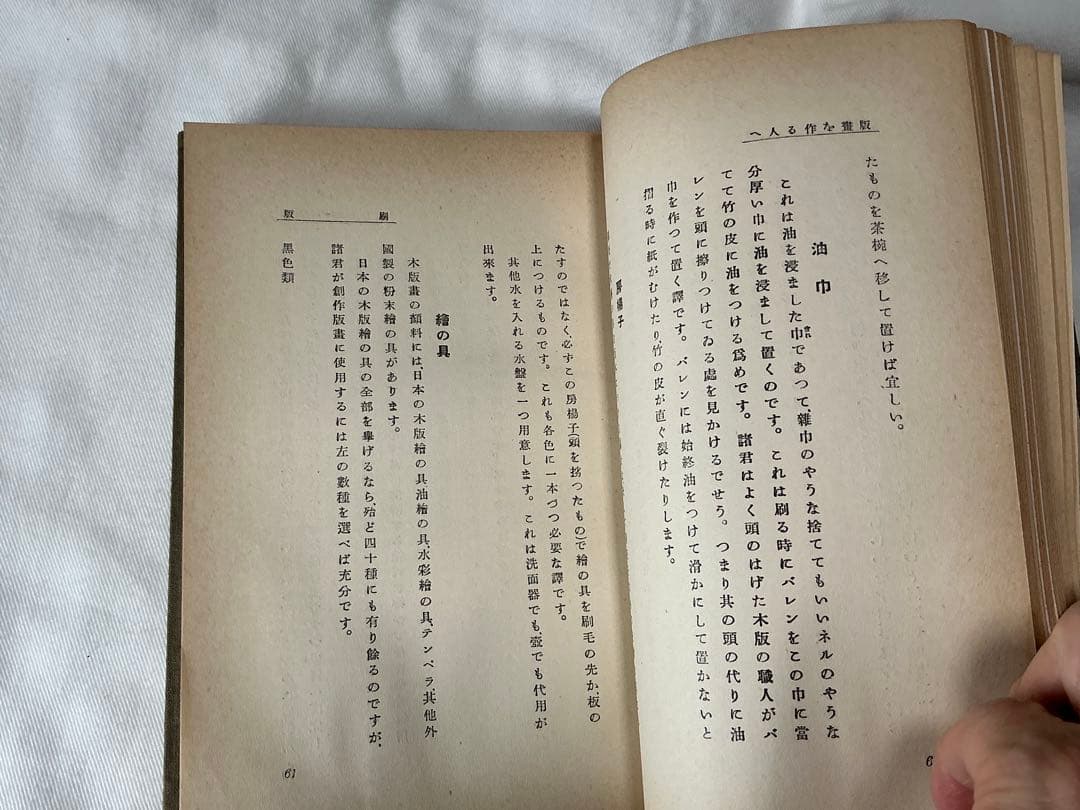 版畫を作る人へ
たものを茶椀へ移して置けば宜しい。
油巾
これは油を浸ました巾であつて、雜巾のやうな捨ててもいいネルのやうな
きれ
分厚い巾に油を浸まして置くのです。これは刷る時にバレンをこの巾に當
てて竹の皮に油をつける爲めです。諸君はよく頭のはげた木版の職人がバ
レンを頭に擦りつけてゐる處を見かけるでせう。つまり其の頭の代りに油
巾を作つて置く譯です。バレンには始終油をつけて滑かにして置かないと
摺る時に紙がむけたり、竹の皮が直ぐ裂けたりします。
房楊子
6
刷版
たすのではなく、必ずこの房楊子(頭を捺つたもの)で繪の具を刷毛の先か、板の
上につけるものです。これも各色に一本づつ必要な譯です。
其他水を入れる水盤を一つ用意します。これは洗面器でも、壺でも代用が
出來ます。
繪の具
木版畫の顏料には、日本の木版繪の具、油繪の具、水彩繪の具、テンペラ、其他外
國製の粉末繪の具があります。
日本の木版繪の具の全部を擧げるなら、殆ど四十種にも有り餘るのですが、
諸君が創作版畫に使用するには左の數種を選べば充分です。
黑色類
61